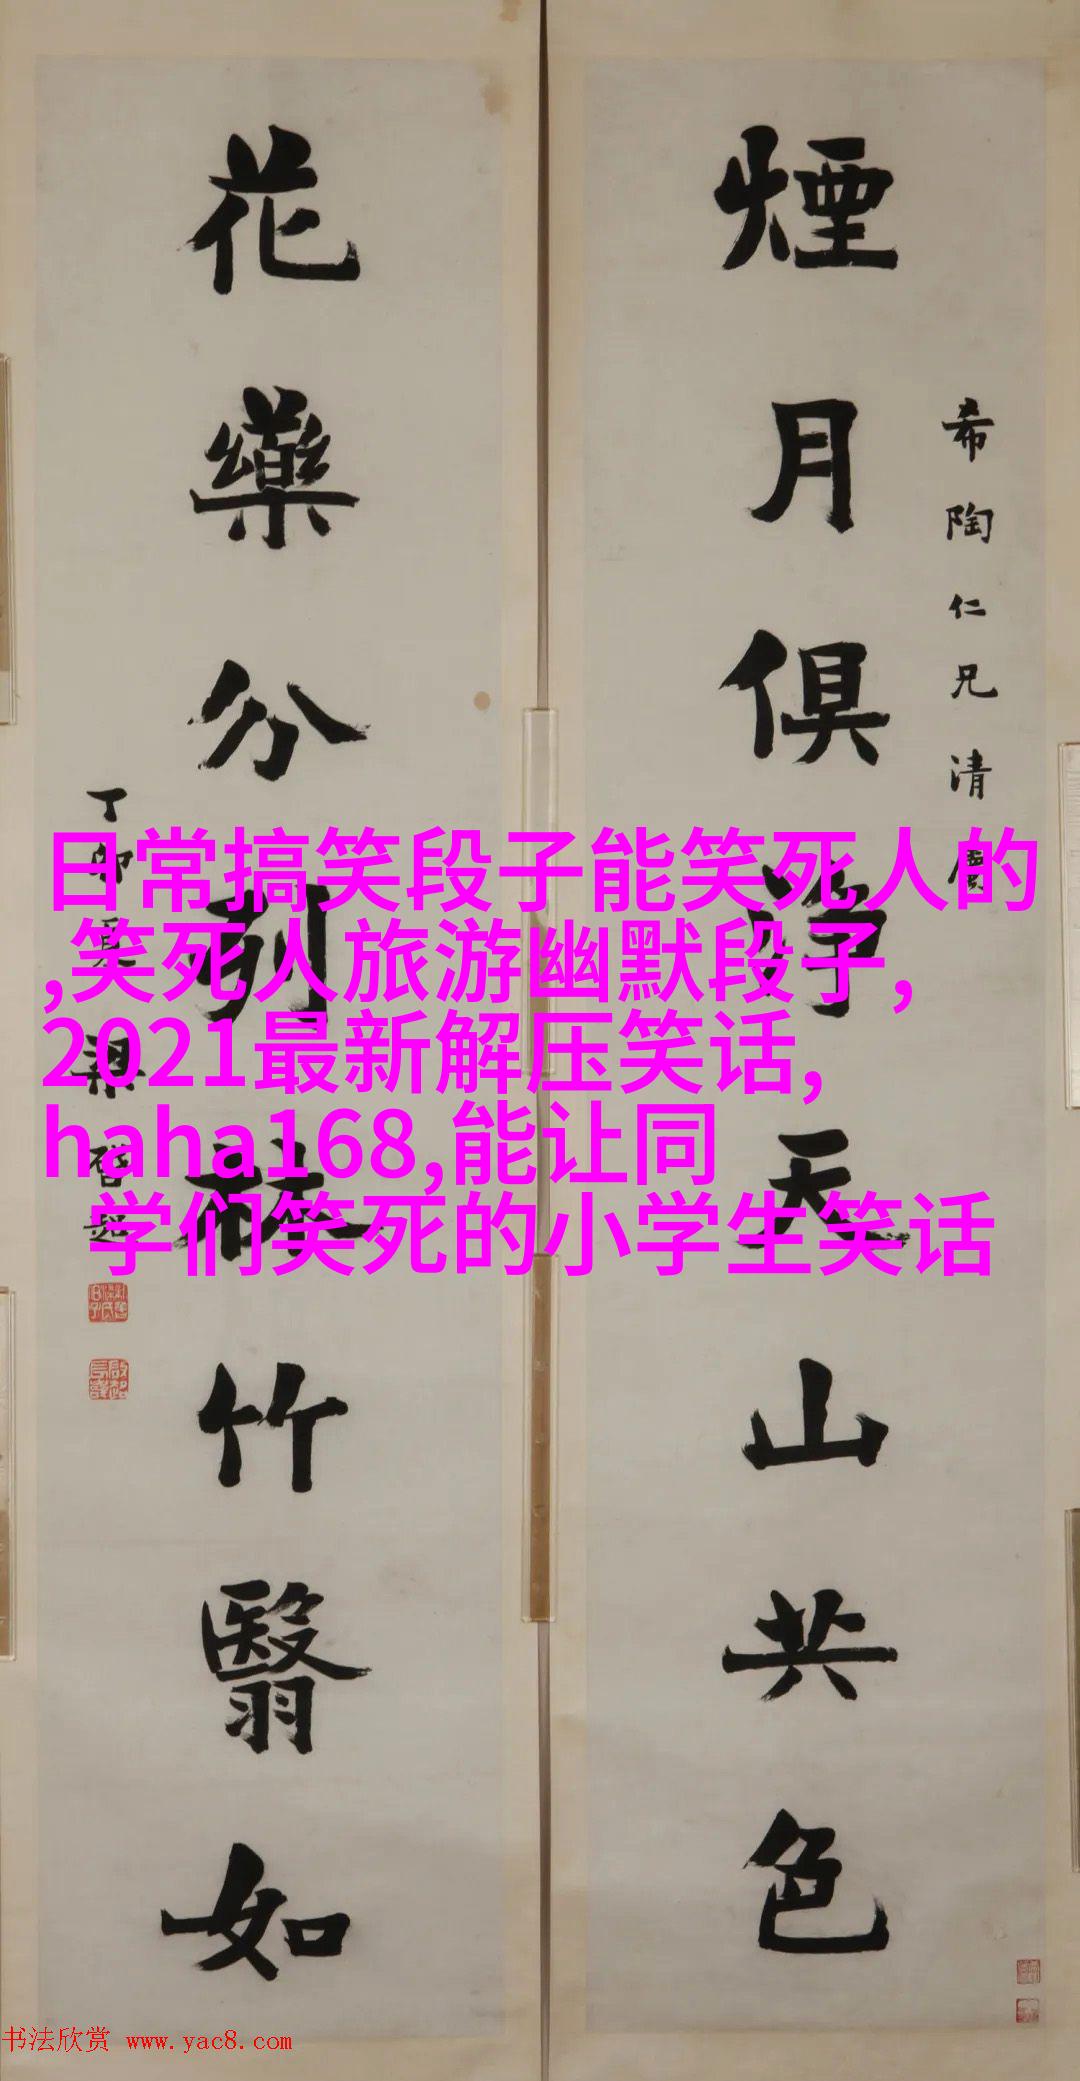 煙月俱浄天山共色
希陶仁兄清
花藥分列林竹翳如
丁卯夏梁啓超
日常搞笑段子能笑死人的
,笑死人旅游幽默段子,
2021最新解压笑话,
haha168,能让同
学们笑死的小学生笑话
书法欣赏 www.yac8.com